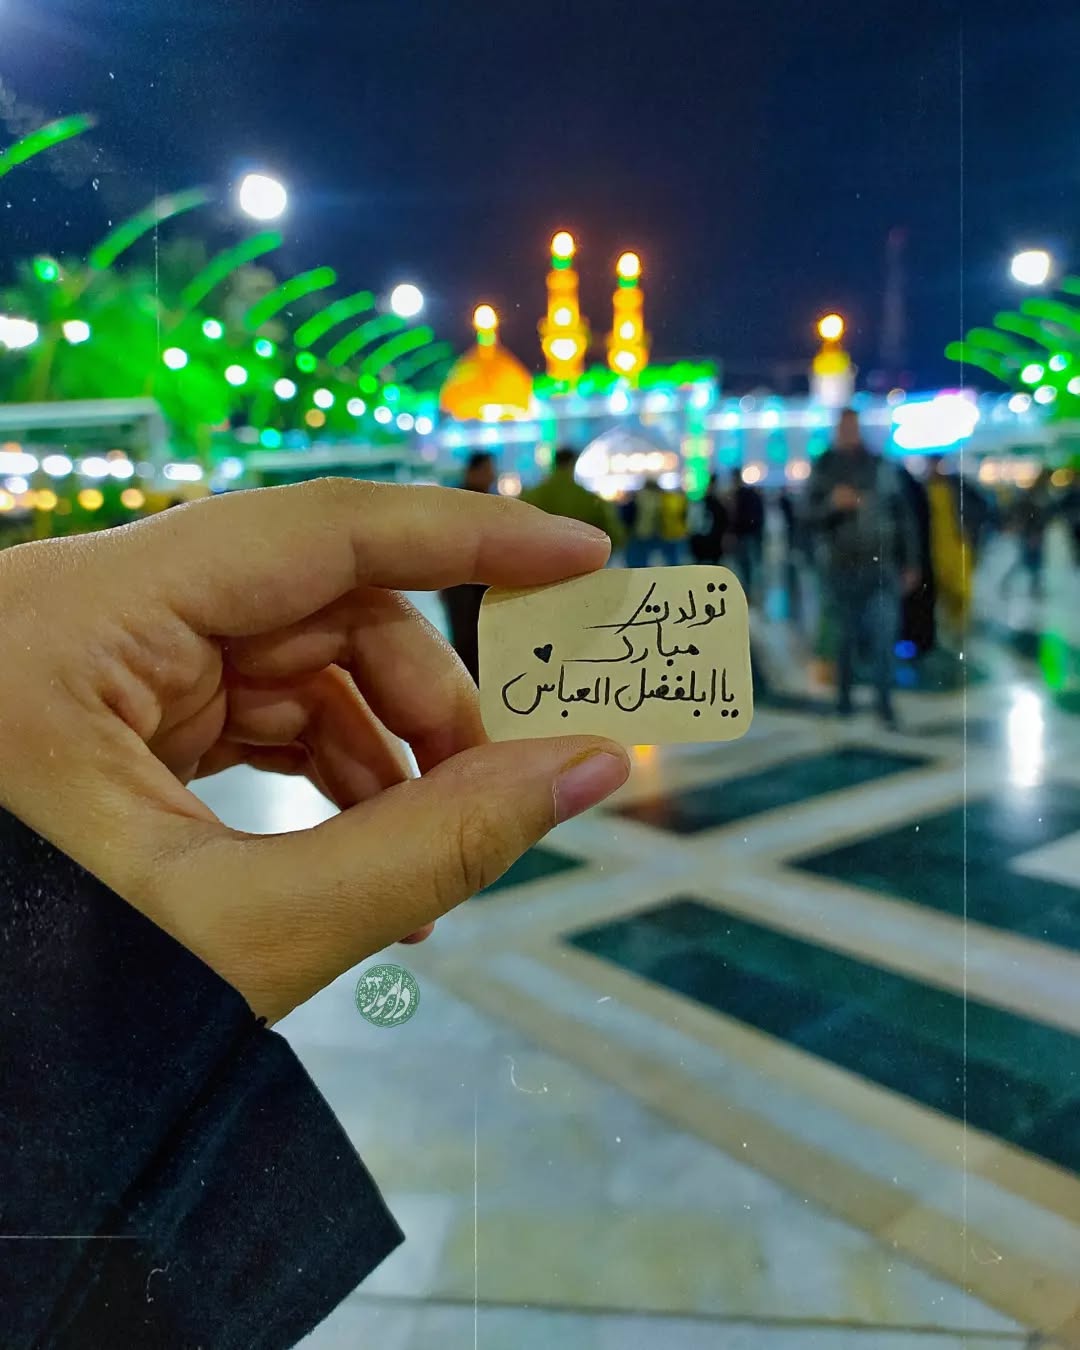 تولدت
مبارک ♥
یا ابلفضل العباس